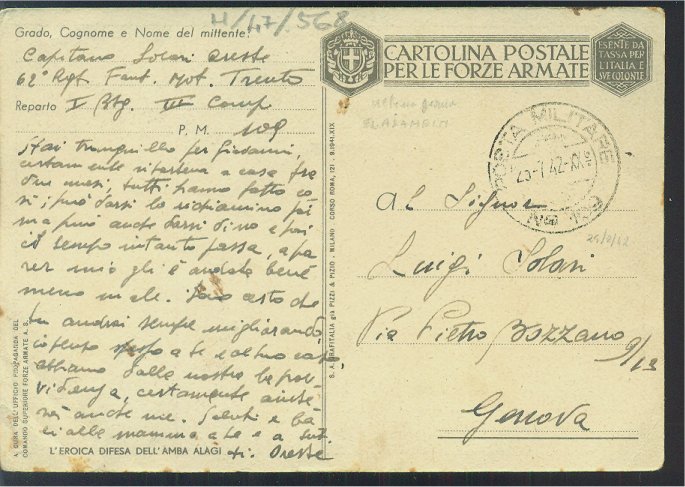 H/47/568
Grado, Cognome e Nome del mittente:
Capitano Solari Oreste
62° Rgt. Fant. Mot. Trento
Reparto I Btg. III Comp
P. M. 109
Stai tranquillo per Giovanni,
certamente ritornerà a casa fra
due mesi, tutti hanno fatto co
sì; può darsi lo richiamino
ma può anche darsi di no e poi
il tempo intanto passa, a pa
rer mio gli è andata bene
meno male. Sono certo che
tu andrai sempre migliorando
io penso spesso a te e al tuo caso
abbiamo dalla nostra la prov
videnza, certamente aiute
rà anche me. Saluti e ba
ci alla mamma a te e a tut
ti. Oreste
L'EROICA DIFESA DELL'AMBA ALAGI
A CURA DELL'UFFICIO PROPAGANDA DEL
COMANDO SUPERIORE FORZE ARMATE A. S.
S. A. GRAFITALIA già PIZZI & PIZIO - MILANO - CORSO ROMA, 121 - 9-1941-XIX
CARTOLINA POSTALE
PER LE FORZE ARMATE
ESENTE DA
TASSA PER
L'ITALIA E
SUE COLONIE
EL ALAMEIN
POSTA MILITARE
42-XX
No 109
Al Signor
Luigi Solari
Via Pietro Bozzano
9/13
Genova